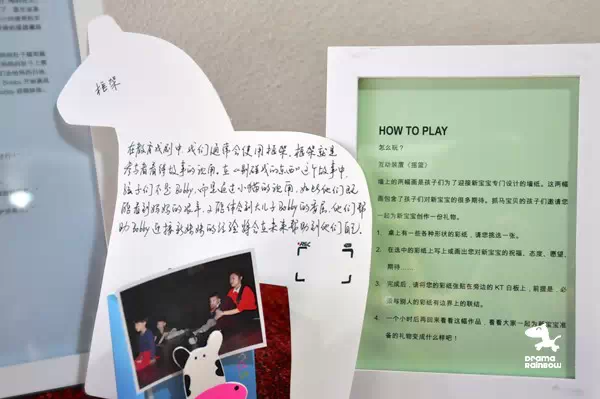 框架
在教育戏剧中，我们通常会使用框架，框架就是
参与者看待故事的视角。在《别碰我的东西》这个故事中，
孩子们不是Bobby，而是通过小猫的视角，如此他们既
能看到妈妈的艰辛，又能体会到大儿子Bobby的，他们帮
助Bobby迎接新妹妹的经验将会在未来帮助到他们自己。
HOW TO PLAY
怎么玩？
互动装置（摇篮）
墙上的两幅画是孩子们为了迎接新宝宝专门设计的墙纸。这两幅
画包含了孩子们对新宝宝的很多期待。抓马宝贝的孩子们邀请您
一起为新宝宝创作一份礼物。
1. 桌上有一些各种形状的彩纸，请您挑选一张。
2. 在选中的彩纸上写上或画出您对新宝宝的祝福、态度、愿望、
期待……
3. 完成后，请将您的彩纸张贴在旁边的 KT 白板上，前提是，必
须与别人的彩纸有边界上的联结。
4. 一个小时后再回来看看这幅作品，看看大家一起为新宝宝准
备的礼物变成什么样吧！
Drama
Rainbow